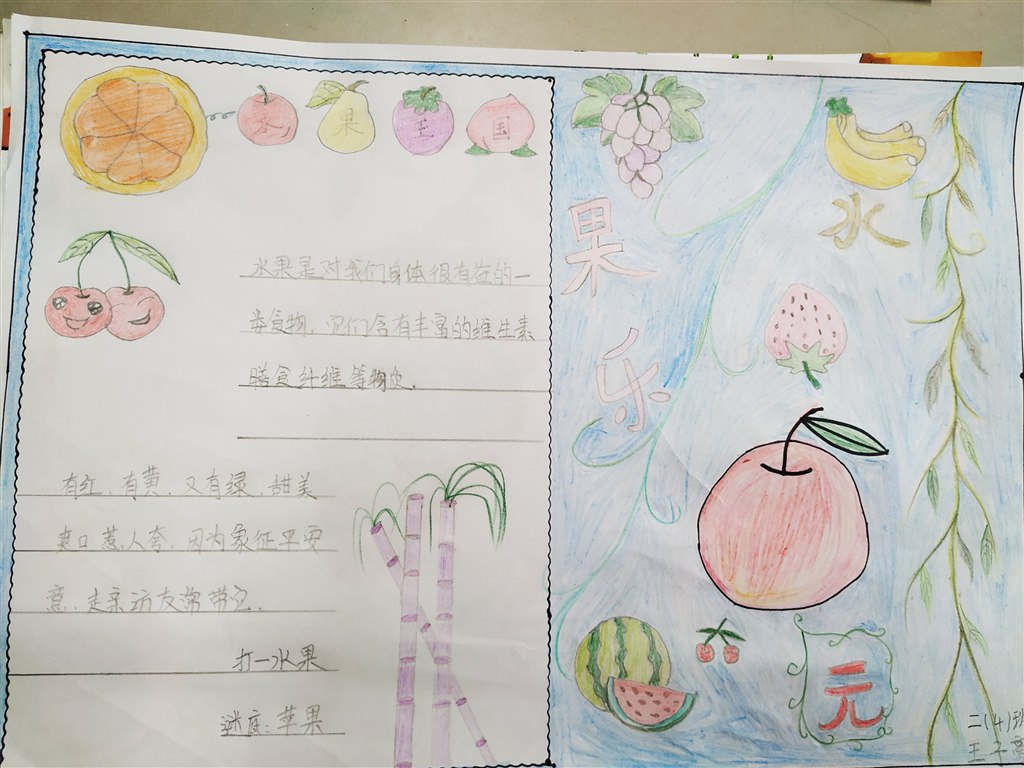 水果王国
水果是对我们身体很有益的一
类食物,它们含有丰富的维生素
膳食纤维等物质.
有红、有黄、又有绿、甜美
爽口惹人夸,因为象征平安
意,走亲访友常带它.
打一水果
谜底:苹果
水
果
乐
元
二(4)班
王子